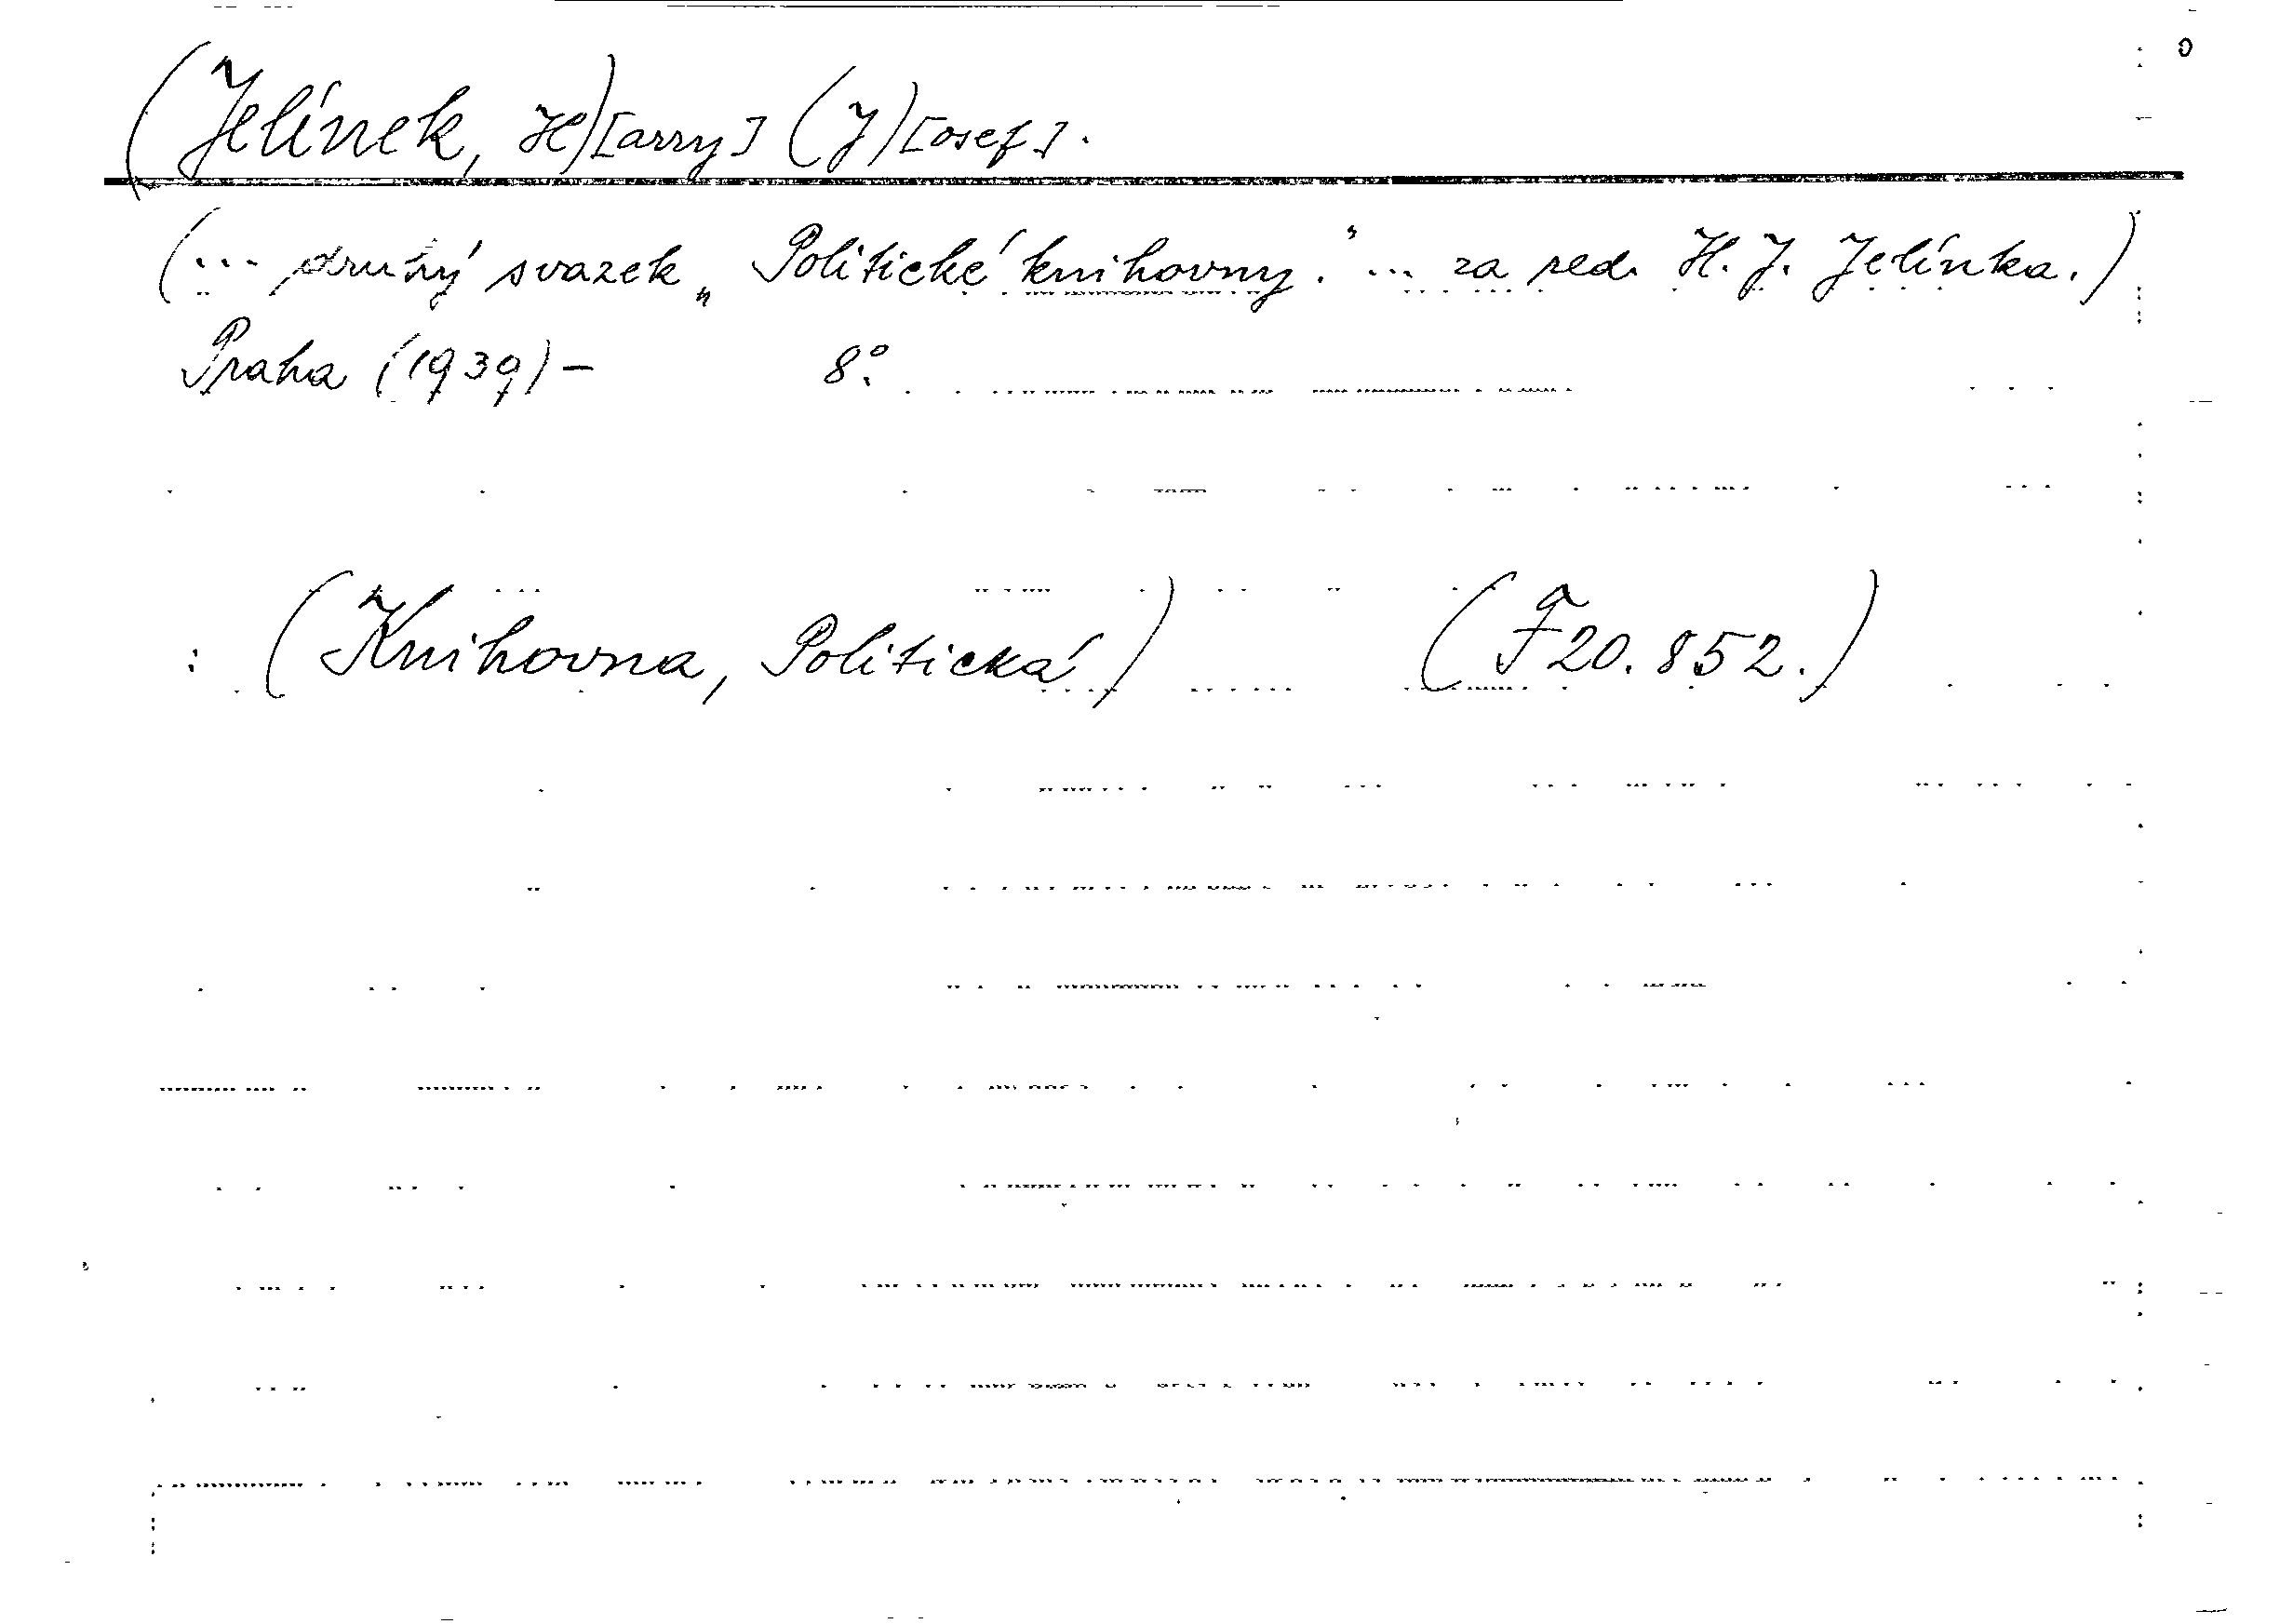 (Jelínek, H)[arry] (J)[osef].
(... druhý svazek „Politické knihovny.“ ... za red. H. J. Jelínka.)
Praha (1939) – 8°.
: (Knihovna, Politická) (F 20.852.)